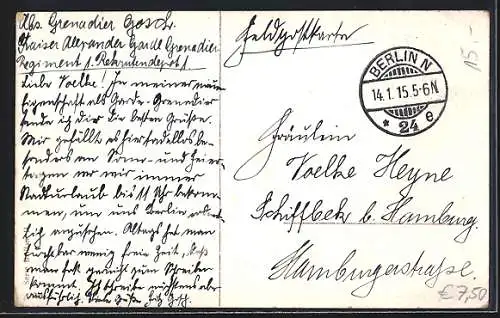 Abs. Grenadier Gosch.
Kaiser Alexander Garde Grenadier
Regiment 1. Rekrutendepot 1
Liebe Voelke! In meiner neuen
Eigenschaft als Garde-Grenadier
sende ich dir die besten Grüße.
Mir gefällt es hier tadellos be-
sonders an Sonn- und Feier-
tagen wo wir immer
Stadturlaub bis 11 Uhr bekom-
men, um uns Berlin
anzusehen. Alltags hat man
furchtbar wenig freie Zeit, daß
man fast garnicht zum Schreiben
kommt. Ich schreibe nächstens aber
ausführlich. Viele Grüße
Feldpostkarte
BERLIN N
14.1.15.5-6N
* 24 e
15.-
Fräulein
Voelke Heyne
Schiffbek b. Hamburg.
Hamburgerstraße.
€ 7,50